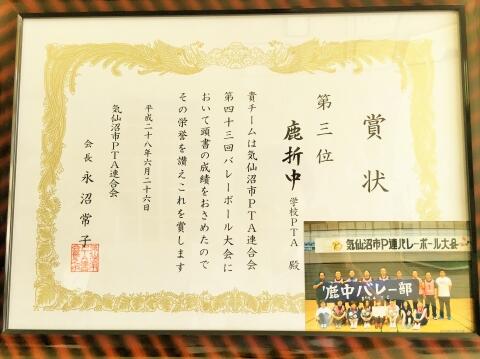 賞状
第三位
鹿折中 学校PTA 殿
貴チームは気仙沼市PTA連合会
第四十三回バレーボール大会に
おいて頭書の成績をおさめたので
その栄誉を讃えこれを賞します
平成二十八年六月二十六日
気仙沼市PTA連合会
会長 永沼常子
気仙沼市P連バレーボール大会
鹿中バレー部